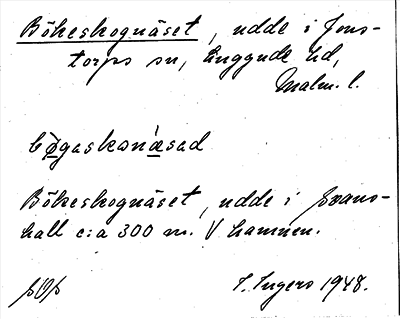 Bökeskognäset, udde i Jons-
torps sn, Luggude hd,
Malm. l.
bøgaskonæsad
Bökeskognäset, udde i Svans-
hall c:a 300 m. V hamnen.
S. Ingers 1948.